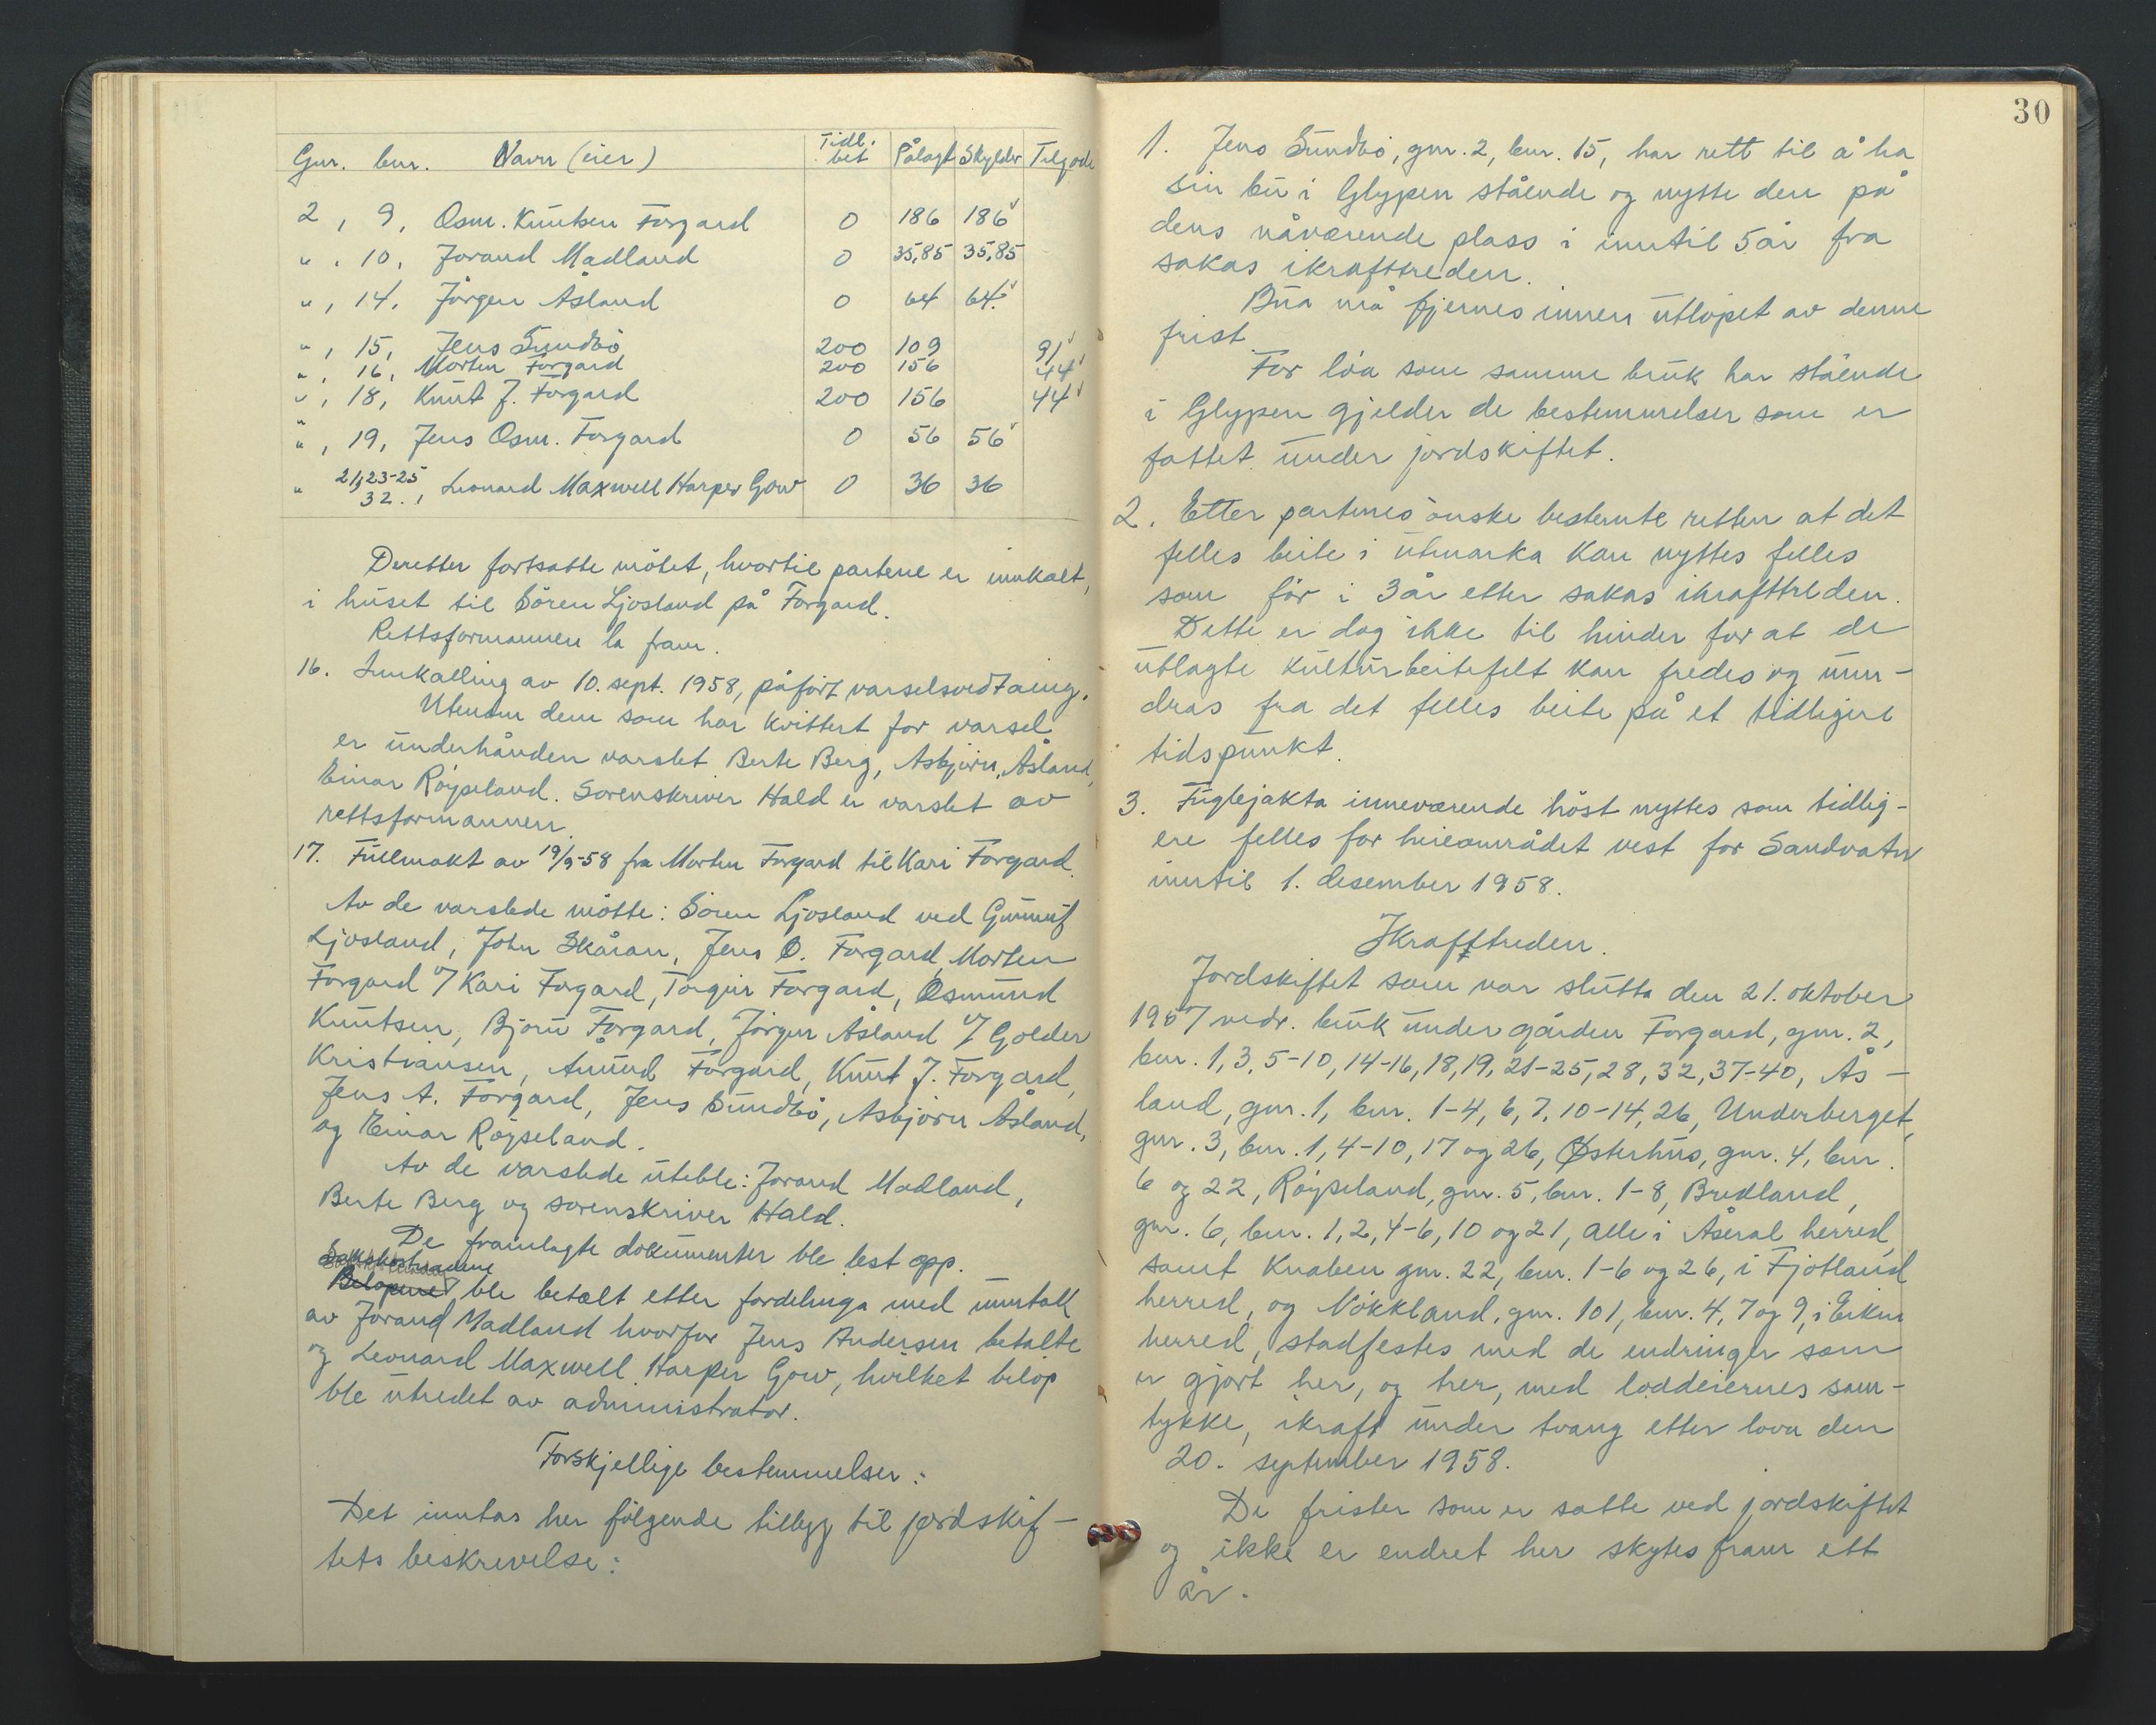 Gnr. bnr. Navn (eier) Tidl. bet Pålagt Skylder Tilgode
2, 9, Osm. Knutsen Forgard 0 186 186 ✓
", 10, Jorand Madland 0 35,85 35,85
", 14, Jörgen Åsland 0 64 64. ✓
", 15, Jens Sundbö 200 109 91 ✓
", 16, Morten Forgard 200 156 44 ✓
", 18, Knut J. Forgard 200 156 44 ✓
", 19, Jens Osm. Forgard 0 56 56 ✓
" 21, 23-25 32., Leonard Maxwell Harper Gow 0 36 36
Deretter fortsatte mötet, hvortil partene er innkalt,
i huset til Sören Ljosland på Forgard.
Rettsformannen la fram.
16. Innkalling av 10. sept. 1958, påfört varselsvedtaing.
Utenom dem som har kvittert for varsel
er underhånden varslet Berte Berg, Asbjörn Åsland,
Einar Röyseland. Sorenskriver Hald er varslet av
rettsformannen.
17. Fullmakt av 19/9-58 fra Morten Forgard til Kari Forgard.
Av de varslede mötte: Sören Ljosland ved Gunnuf
Ljosland, John Skåran, Jens O. Forgard, Morten
Forgard v/ Kari Forgard, Torgur Forgard, Osmund
Knutsen, Bjoru Forgard, Jörgen Åsland v/ Golder
Kristiansen, Ånund Forgard, Knut J. Forgard,
Jens A. Forgard, Jens Sundbö, Asbjörn Åsland,
og Einar Röyseland.
Av de varslede uteble: Jorand Madland,
Berte Berg og sorenskriver Hald.
De framlagte dokumenter ble lest opp.
Sakskostnadene
Belopene ble betalt etter fordelinga med unntak
av Jorand Madland hvorfor Jens Andersen betalte
og Leonard Maxwell Harper Gow, hvilket belöp
ble utredet av administrator.
Forskjellige bestemmelser:
Det inntas her fölgende tillegg til jordskif-
tets beskrivelse:
30
1. Jens Sundbö, gnr. 2, bnr. 15, har rett til å ha
sin bu i Glypen stående og nytte den på
dens nåværende plass i inntil 5 år fra
sakas ikrafttreden.
Bua må fjernes innen utlöpet av denne
frist.
For löa som samme bruk har stående
i Glypen gjelder de bestemmelser som er
fattet under jordskiftet.
2. Etter partenes önske bestemte retten at det
felles beite i utmarka kan nyttes felles
som för i 3 år etter sakas ikrafttreden.
Dette er dog ikke til hinder for at de
utlagte kulturbeitefelt kan fredes og unn-
dras fra det felles beite på et tidligere
tidspunkt.
3. Fuglejakta inneværende höst nyttes som tidlig-
ere felles for heieområdet vest for Sandvatn
inntil 1. desember 1958.
Ikrafttreden.
Jordskiftet som var slutta den 21. oktober
1957 vedr. bruk under gården Forgard, gnr. 2,
bnr. 1, 3, 5-10, 14-16, 18, 19, 21-25, 28, 32, 37-40, Ås-
land, gnr. 1, bnr. 1-4, 6, 7, 10-14, 26, Underberget,
gnr. 3, bnr. 1, 4-10, 17 og 26, Østerhus, gnr. 4, bnr.
6 og 22, Röyseland, gnr. 5, bnr. 1-8, Bredland,
gnr. 6, bnr. 1, 2, 4-6, 10 og 21, alle i Åseral herred,
samt Knaben gnr. 22, bnr. 1-6 og 26, i Fjotland
herred, og Nökkland, gnr. 101, bnr. 4, 7 og 9, i Eiken
herred, stadfestes med de endringer som
er gjort her, og trer, med loddeiernes sam-
tykke, ikraft under tvang etter lova den
20. september 1958.
De frister som er satte ved jordskiftet
og ikke er endret her skytes fram ett
år.